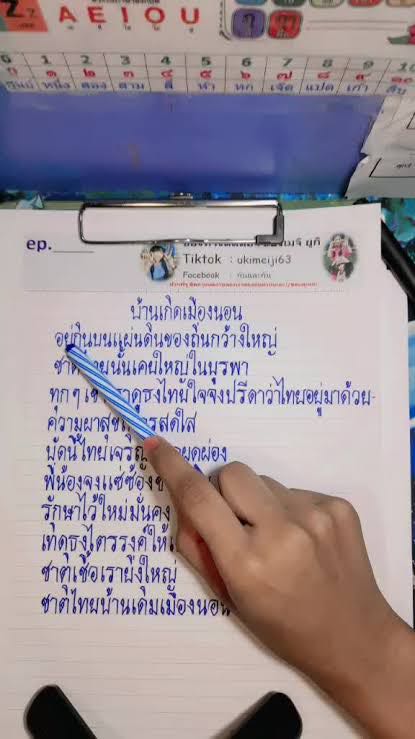 A E I O U
0 1 2 3 4 5 6 7 8 9 10
๑ ๒ ๓ ๔ ๕ ๖ ๗ ๘ ๙
หนึ่ง สอง สาม สี่ ห้า หก เจ็ด แปด เก้า
ep.
Tiktok : ukimeiji63
Facebook : กันและกัน
บ้านเกิดเมืองนอน
อยู่กินบนแผ่นดินของถิ่นกว้างใหญ่
นั้นเคยใหญ่ในบุรพา
ทุกๆ ธงไทยใจจงปรีดาว่าไทยอยู่มาด้วย-
ความผาสุข สดใส
บัดนี้ไทยเจริญ ผุดผ่อง
พี่น้องจงแซ่ซ้อง
รักษาไว้ให้มั่นคง
เทิดธงไตรรงค์ให้
ชาติเชื้อเรายิ่งใหญ่
ชาติไทยบ้านเดิมเมืองนอน